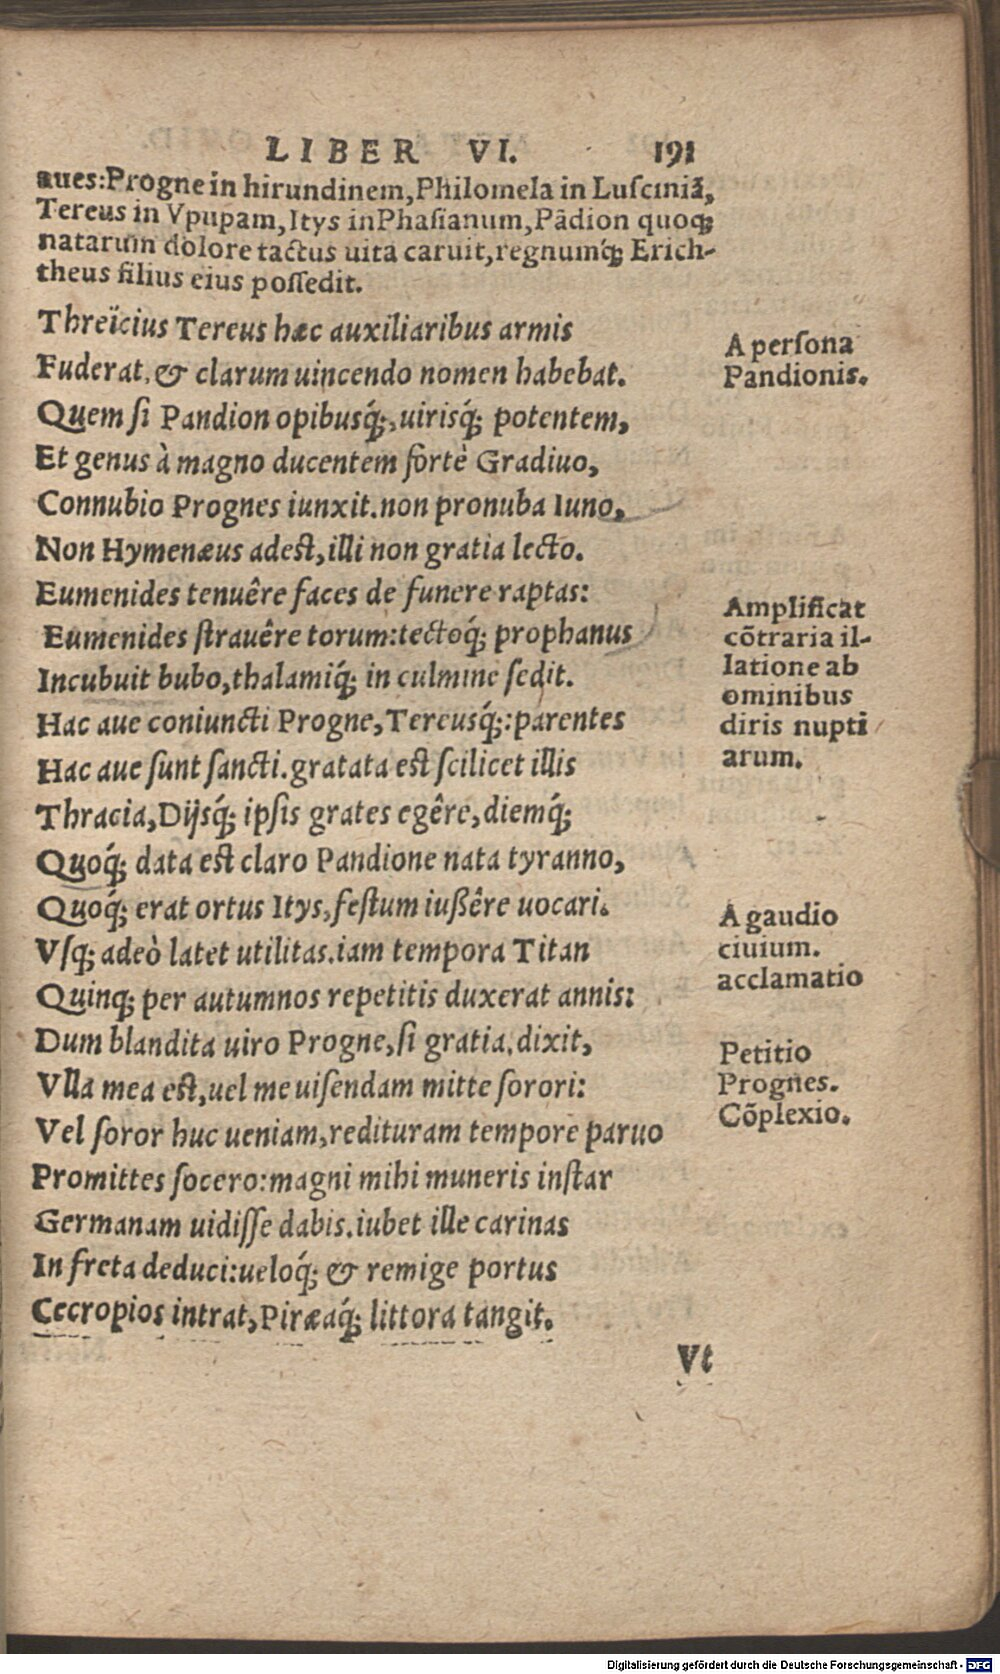 LIBER VI. 191
aues:Progne in hirundinem,Philomela in Lusciniã,
Tereus in Vpupam,Itys inPhasianum,Pãdion quoq;
natarum dolore tactus uita caruit,regnumq́; Erich-
theus filius eius possedit.
Threïcius Tereus hæc auxiliaribus armis
Fuderat, & clarum uincendo nomen habebat.
A persona
Pandionis.
Quem si Pandion opibusq́;,uirisq́; potentem,
Et genus à magno ducentem fortè Gradiuo,
Connubio Prognes iunxit.non pronuba Iuno,
Non Hymenæus adest,illi non gratia lecto.
Eumenides tenuêre faces de funere raptas:
Eumenides strauêre torum:tectoq́; prophanus
Incubuit bubo,thalamiq́; in culmine sedit.
Hac aue coniuncti Progne,Tereusq́;:parentes
Hac aue sunt sancti.gratata est scilicet illis
Amplificat
cõtraria il-
latione ab
ominibus
diris nupti
arum.
Thracia,Dijsq́; ipsis grates egêre,diemq́;
Quoq́; data est claro Pandione nata tyranno,
Quoq́; erat ortus Itys,festum iußêre uocari.
Vsq; adeò latet utilitas.iam tempora Titan
Quinq; per autumnos repetitis duxerat annis:
A gaudio
ciuium.
acclamatio
Dum blandita uiro Progne,si gratia,dixit,
Vlla mea est,uel me uisendam mitte sorori:
Vel soror huc ueniam,redituram tempore paruo
Petitio
Prognes.
Cõplexio.
Promittes socero:magni mihi muneris instar
Germanam uidisse dabis.iubet ille carinas
In freta deduci:ueloq́; & remige portus
Cecropios intrat,Piræaq́; littora tangit.
Vt
Digitalisierung gefördert durch die Deutsche Forschungsgemeinschaft - DFG